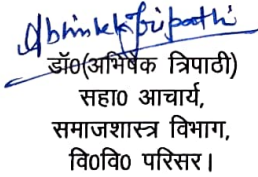 Abhishek Tripathi
डॉ0(अभिषेक त्रिपाठी)
सहा0 आचार्य,
समाजशास्त्र विभाग,
वि0वि0 परिसर।